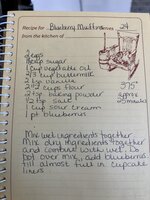 Recipe for Blueberry Muffins Serves 24
From the kitchen of
2 cups
sugar
1 cup vegetable oil
2/3 cup buttermilk
2 vanilla
2 1/2 cups flour
375°
2 tsp baking powder
1/2 tsp salt
1 cup sour cream
1 pt blueberries
Mix wet ingredients together
Mix dry ingredients together
and combine with wet. Do
not over mix, add blueberries
fill almost full in cupcake
liners